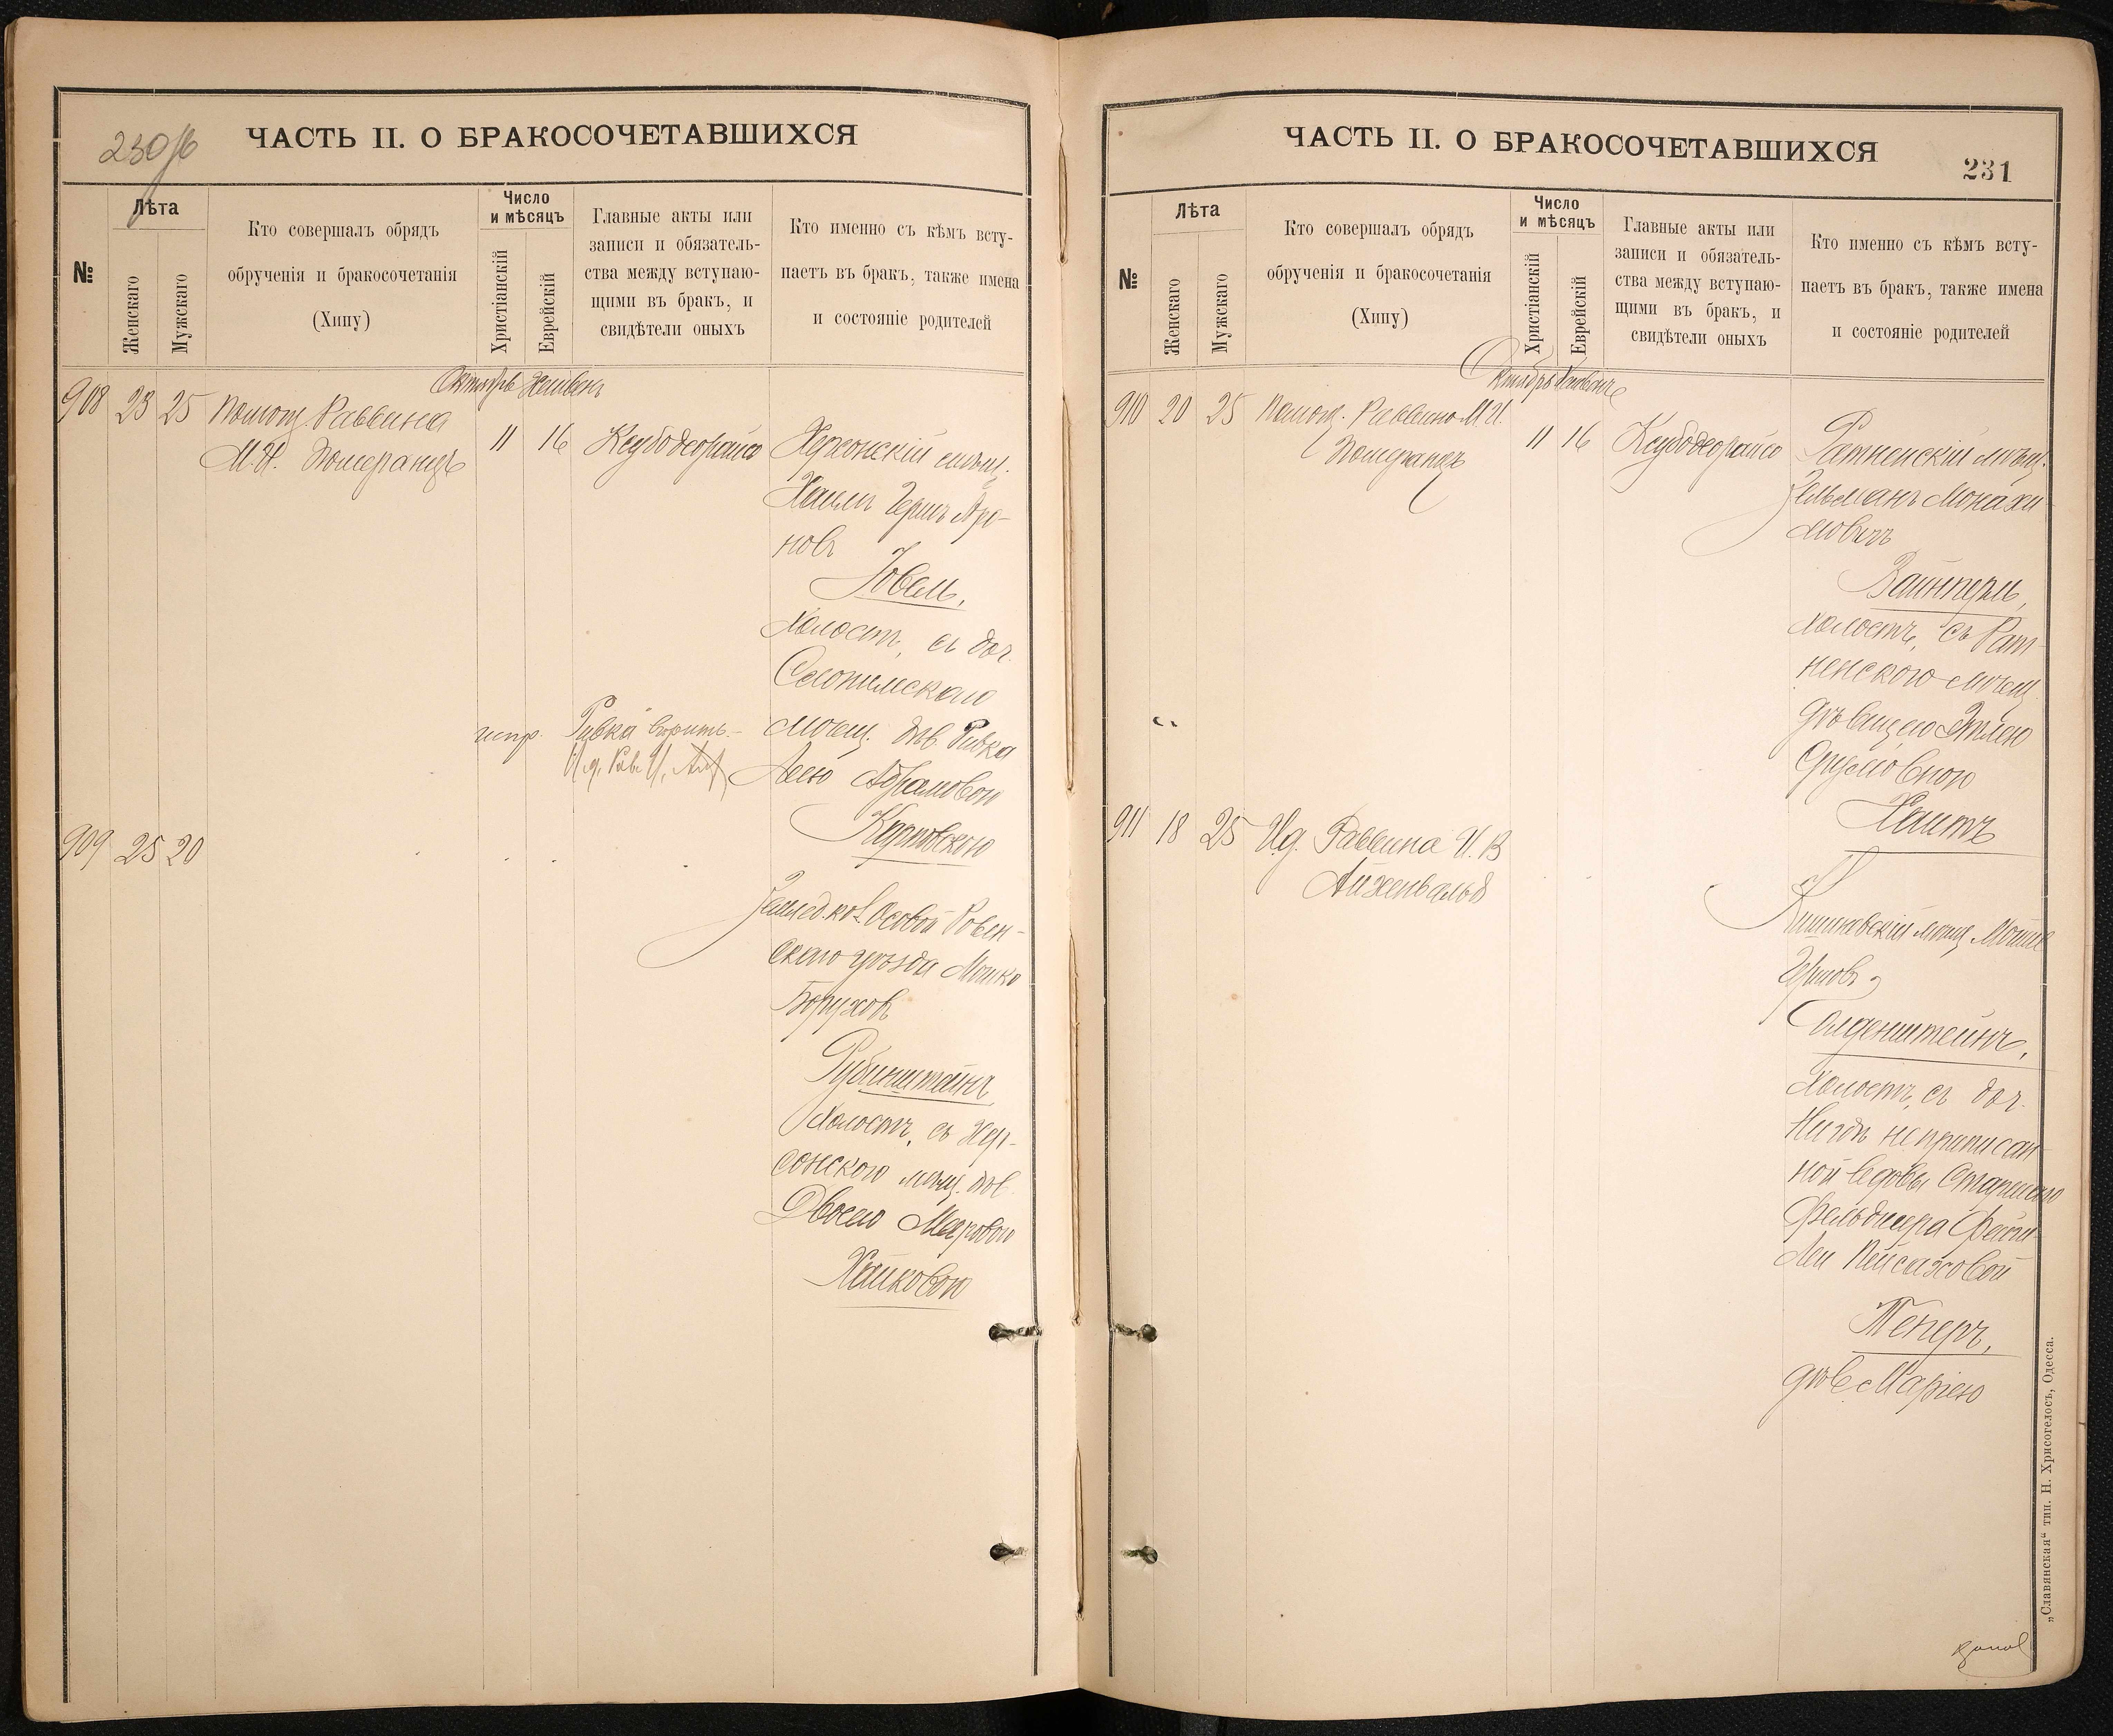 230 об
ЧАСТЬ II. О БРАКОСОЧЕТАВШИХСЯ
№
Лѣта
Женскаго
Мужскаго
Кто совершалъ обрядъ
обрученія и бракосочетанія
(Хипу)
Число
и мѣсяцъ
Христіанскій
Еврейскій
Главные акты или
записи и обязатель-
ства между вступаю-
щими въ бракъ, и
свидѣтели оныхъ
Кто именно съ кѣмъ всту-
паетъ въ бракъ, также имена
и состояніе родителей
Октябрь Хешвонъ
908 23 25 Помощ. Раввина
М. И. Померанцъ
11 16 Ксубодеорайсо
Херсонскій мѣщ.
Хаимъ Гершъ Аро-
новъ
Ювель,
холостъ, съ доч.
мѣщ. дѣв. Ривка
Леею Абрамовой
испр. "Ривка" вѣрить.
909 25 20
Землед. кол. Осовой Ровен-
скаго уѣзда Мошко
Боруховъ
Рубинштейнъ
холостъ, съ Хер-
сонскою мѣщ. дѣв.
Двосею Мееровою
Хайковою
ЧАСТЬ II. О БРАКОСОЧЕТАВШИХСЯ
231
№
Лѣта
Женскаго
Мужскаго
Кто совершалъ обрядъ
обрученія и бракосочетанія
(Хипу)
Число
и мѣсяцъ
Христіанскій
Еврейскій
Главные акты или
записи и обязатель-
ства между вступаю-
щими въ бракъ, и
свидѣтели оныхъ
Кто именно съ кѣмъ всту-
паетъ въ бракъ, также имена
и состояніе родителей
Октябрь Хешвонъ
910 20 25 Помощ. Раввина М. И.
Померанцъ
11 16 Ксубодеорайсо
Ратненскій мѣщ.
Зельманъ Монахи-
мовъ
Вайнперль,
холостъ, съ Рат-
ненскою мѣщ.
дѣвицею Этлею
Сруловною
Хаитъ
911 18 25 И.д. Раввина И. В.
Айзенвальд
Кишиневскій мѣщ. Мошко
Голденштейнъ,
холостъ, съ доч.
Нигдѣ не приписан-
ной вдовы Старшаго
Фельдшера Фейги-
Леи Пейсаховой
Теперъ,
дѣв. Маріею
„Славянская“ тип. Н. Хрисогелосъ, Одесса.